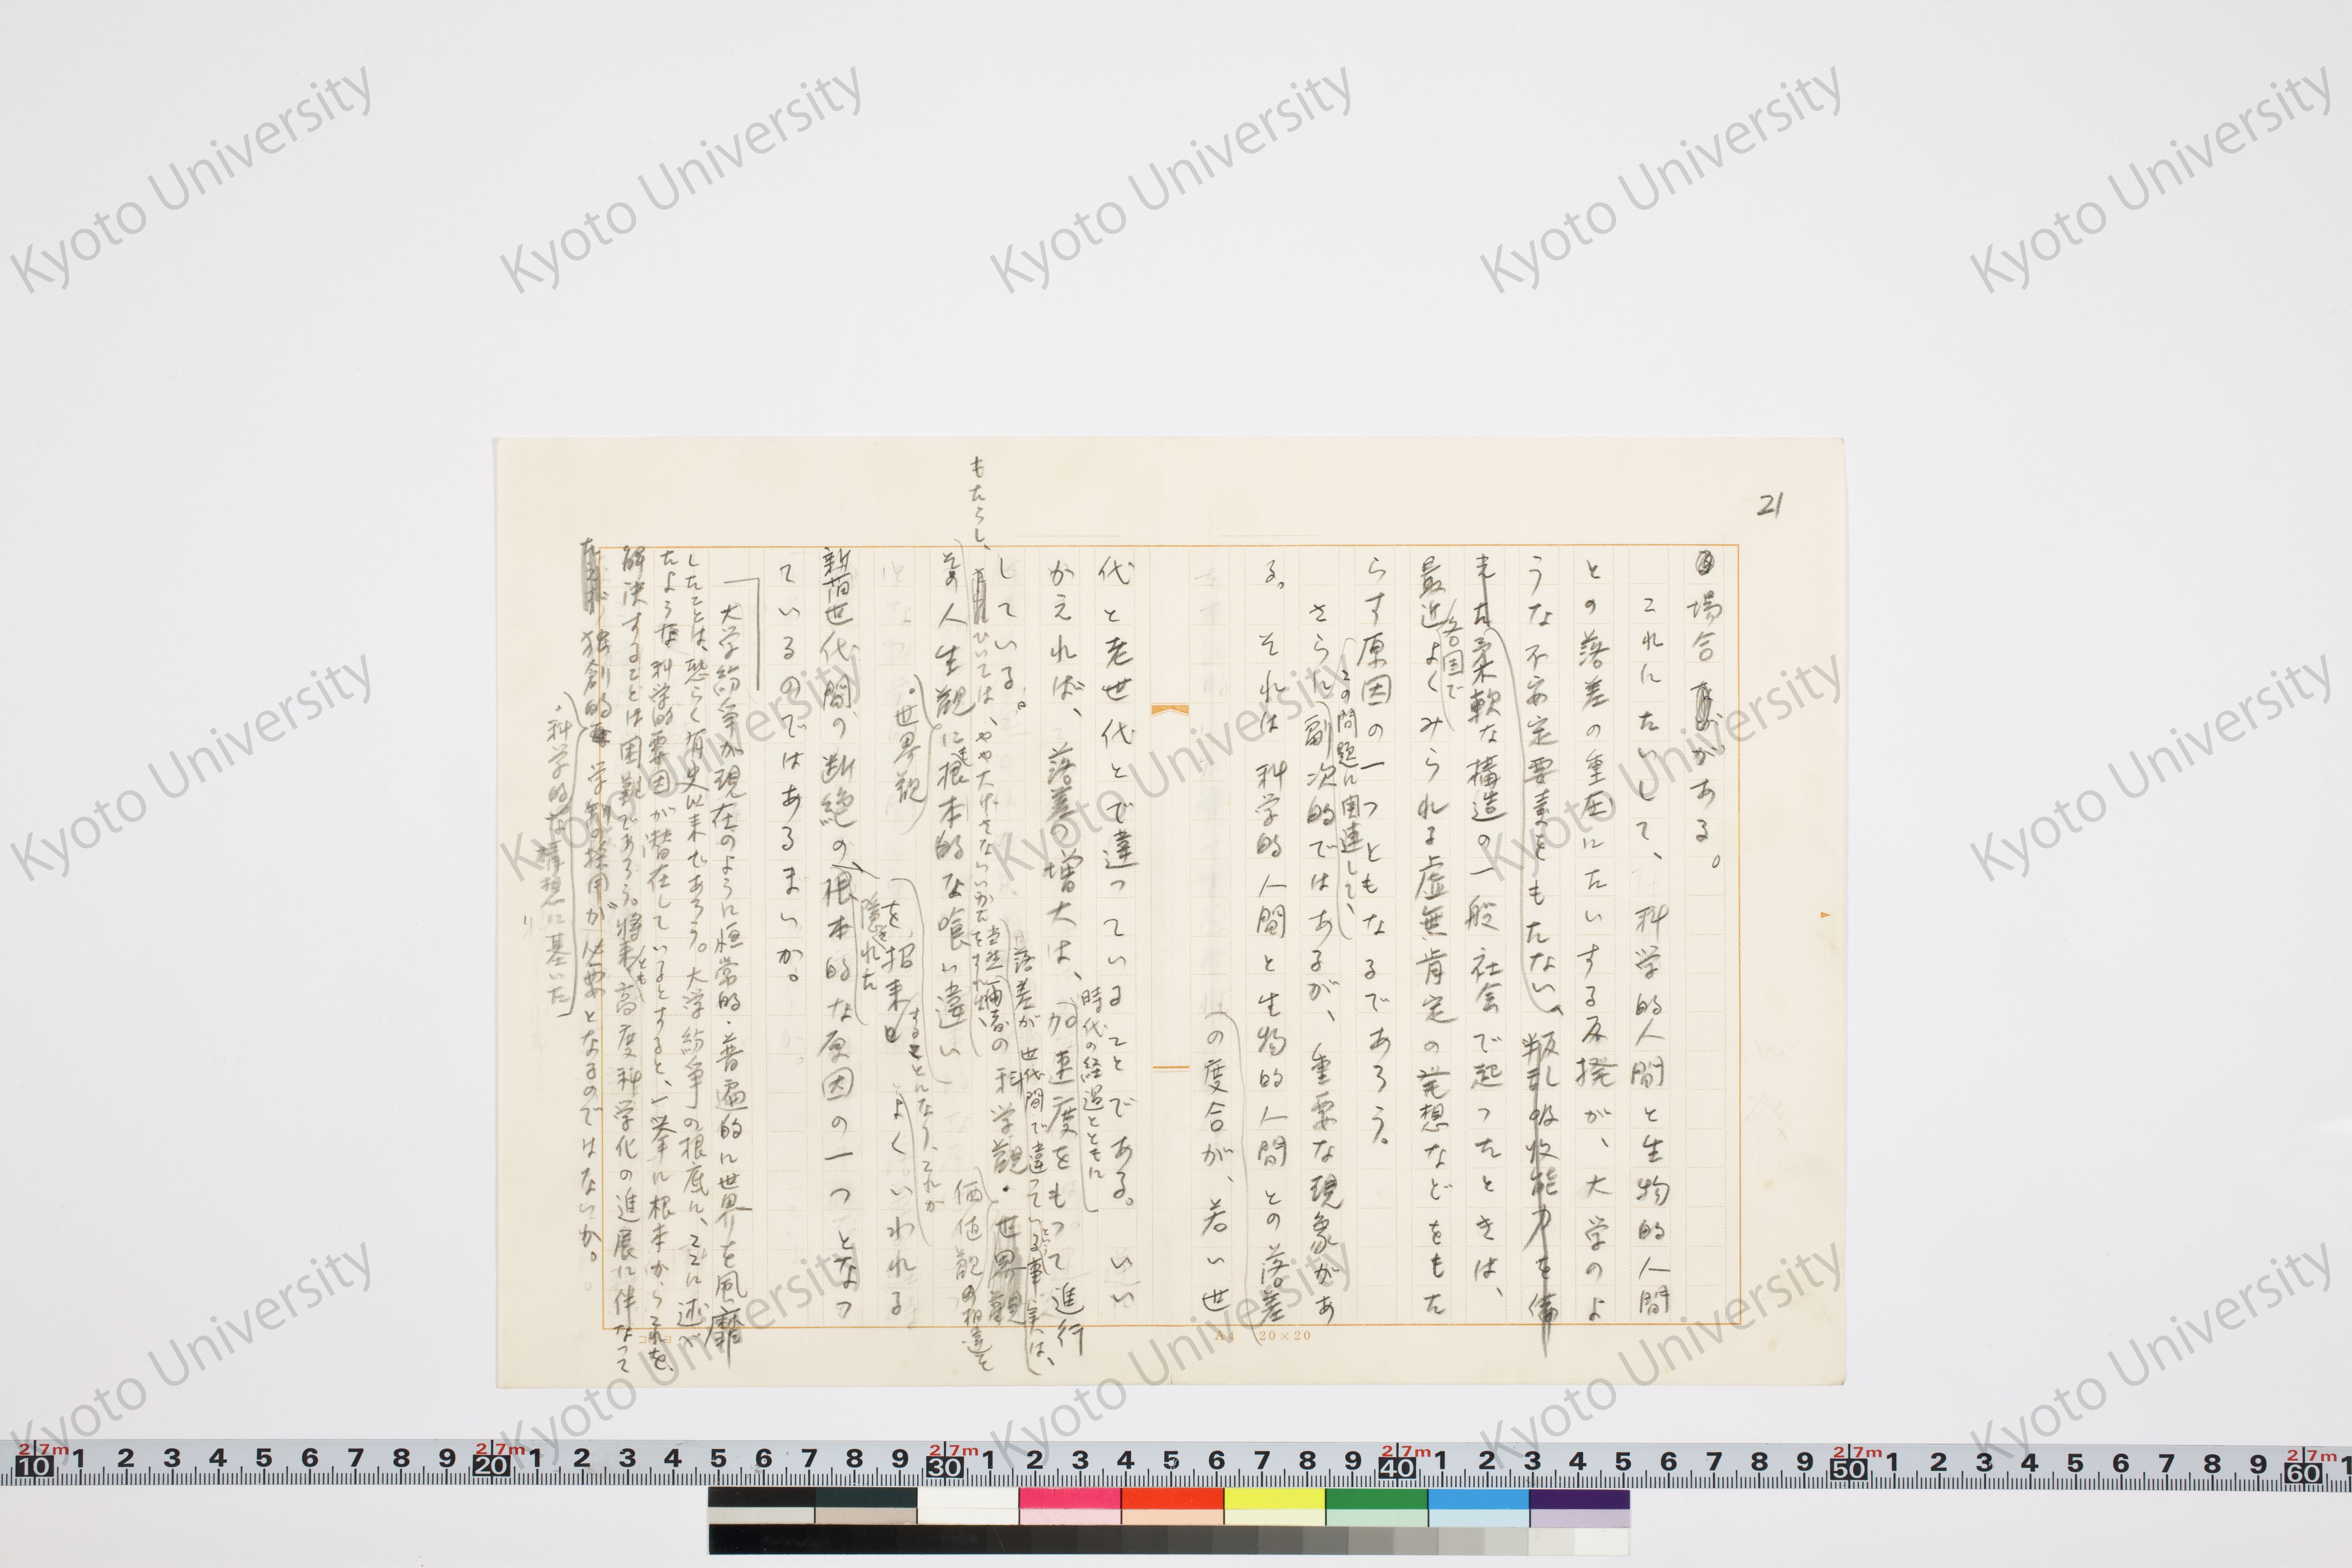 21
場合がある。
これにたいして、科学的人間と生物的人間
との落差の重圧にたいする反撥が、大学のよ
うな不安定要素ともたない、叛乱吸収能力を備
えた柔軟な構造の一般社会で起つたときは、
各国で
最近よくみられる虚無肯定の思想などをもた
らす原因の一つともなるであろう。
この問題に関連して、
さらに副次的ではあるが、重要な現象があ
る。それは科学的人間と生物的人間との落差
の度合が、若い世
代と老世代とで違つていることである。いい
時代の経過とともに
かえれば、落差の増大は、加速度をもつて進行
している。
落差が世代間で違つている事実は、
当然両者の科学観・世界観
価値観の相違を
もたらし、
ひいては、やや大げさないいかたをすれば、
その人生観に根本的な喰い違い
・世界観
を招来
することになり、これが
よくいわれる
隠された
新旧世代間の断絶の根本的な原因の一つとなつ
ているのではあるまいか。
大学紛争が現在のように恒常的・普遍的に世界を風靡
したことは、恐らく有史以来であろう。大学紛争の根底に、ここに述べ
たような科学的要因が潜在しているとすると、一挙に根本からこれを、
解決することは困難であろう。将来とも高度科学化の進展に伴なつて
独創的学制の採用が必要となるのではないか。
・科学的な構想に基いた
A4 20×20
Kyoto University